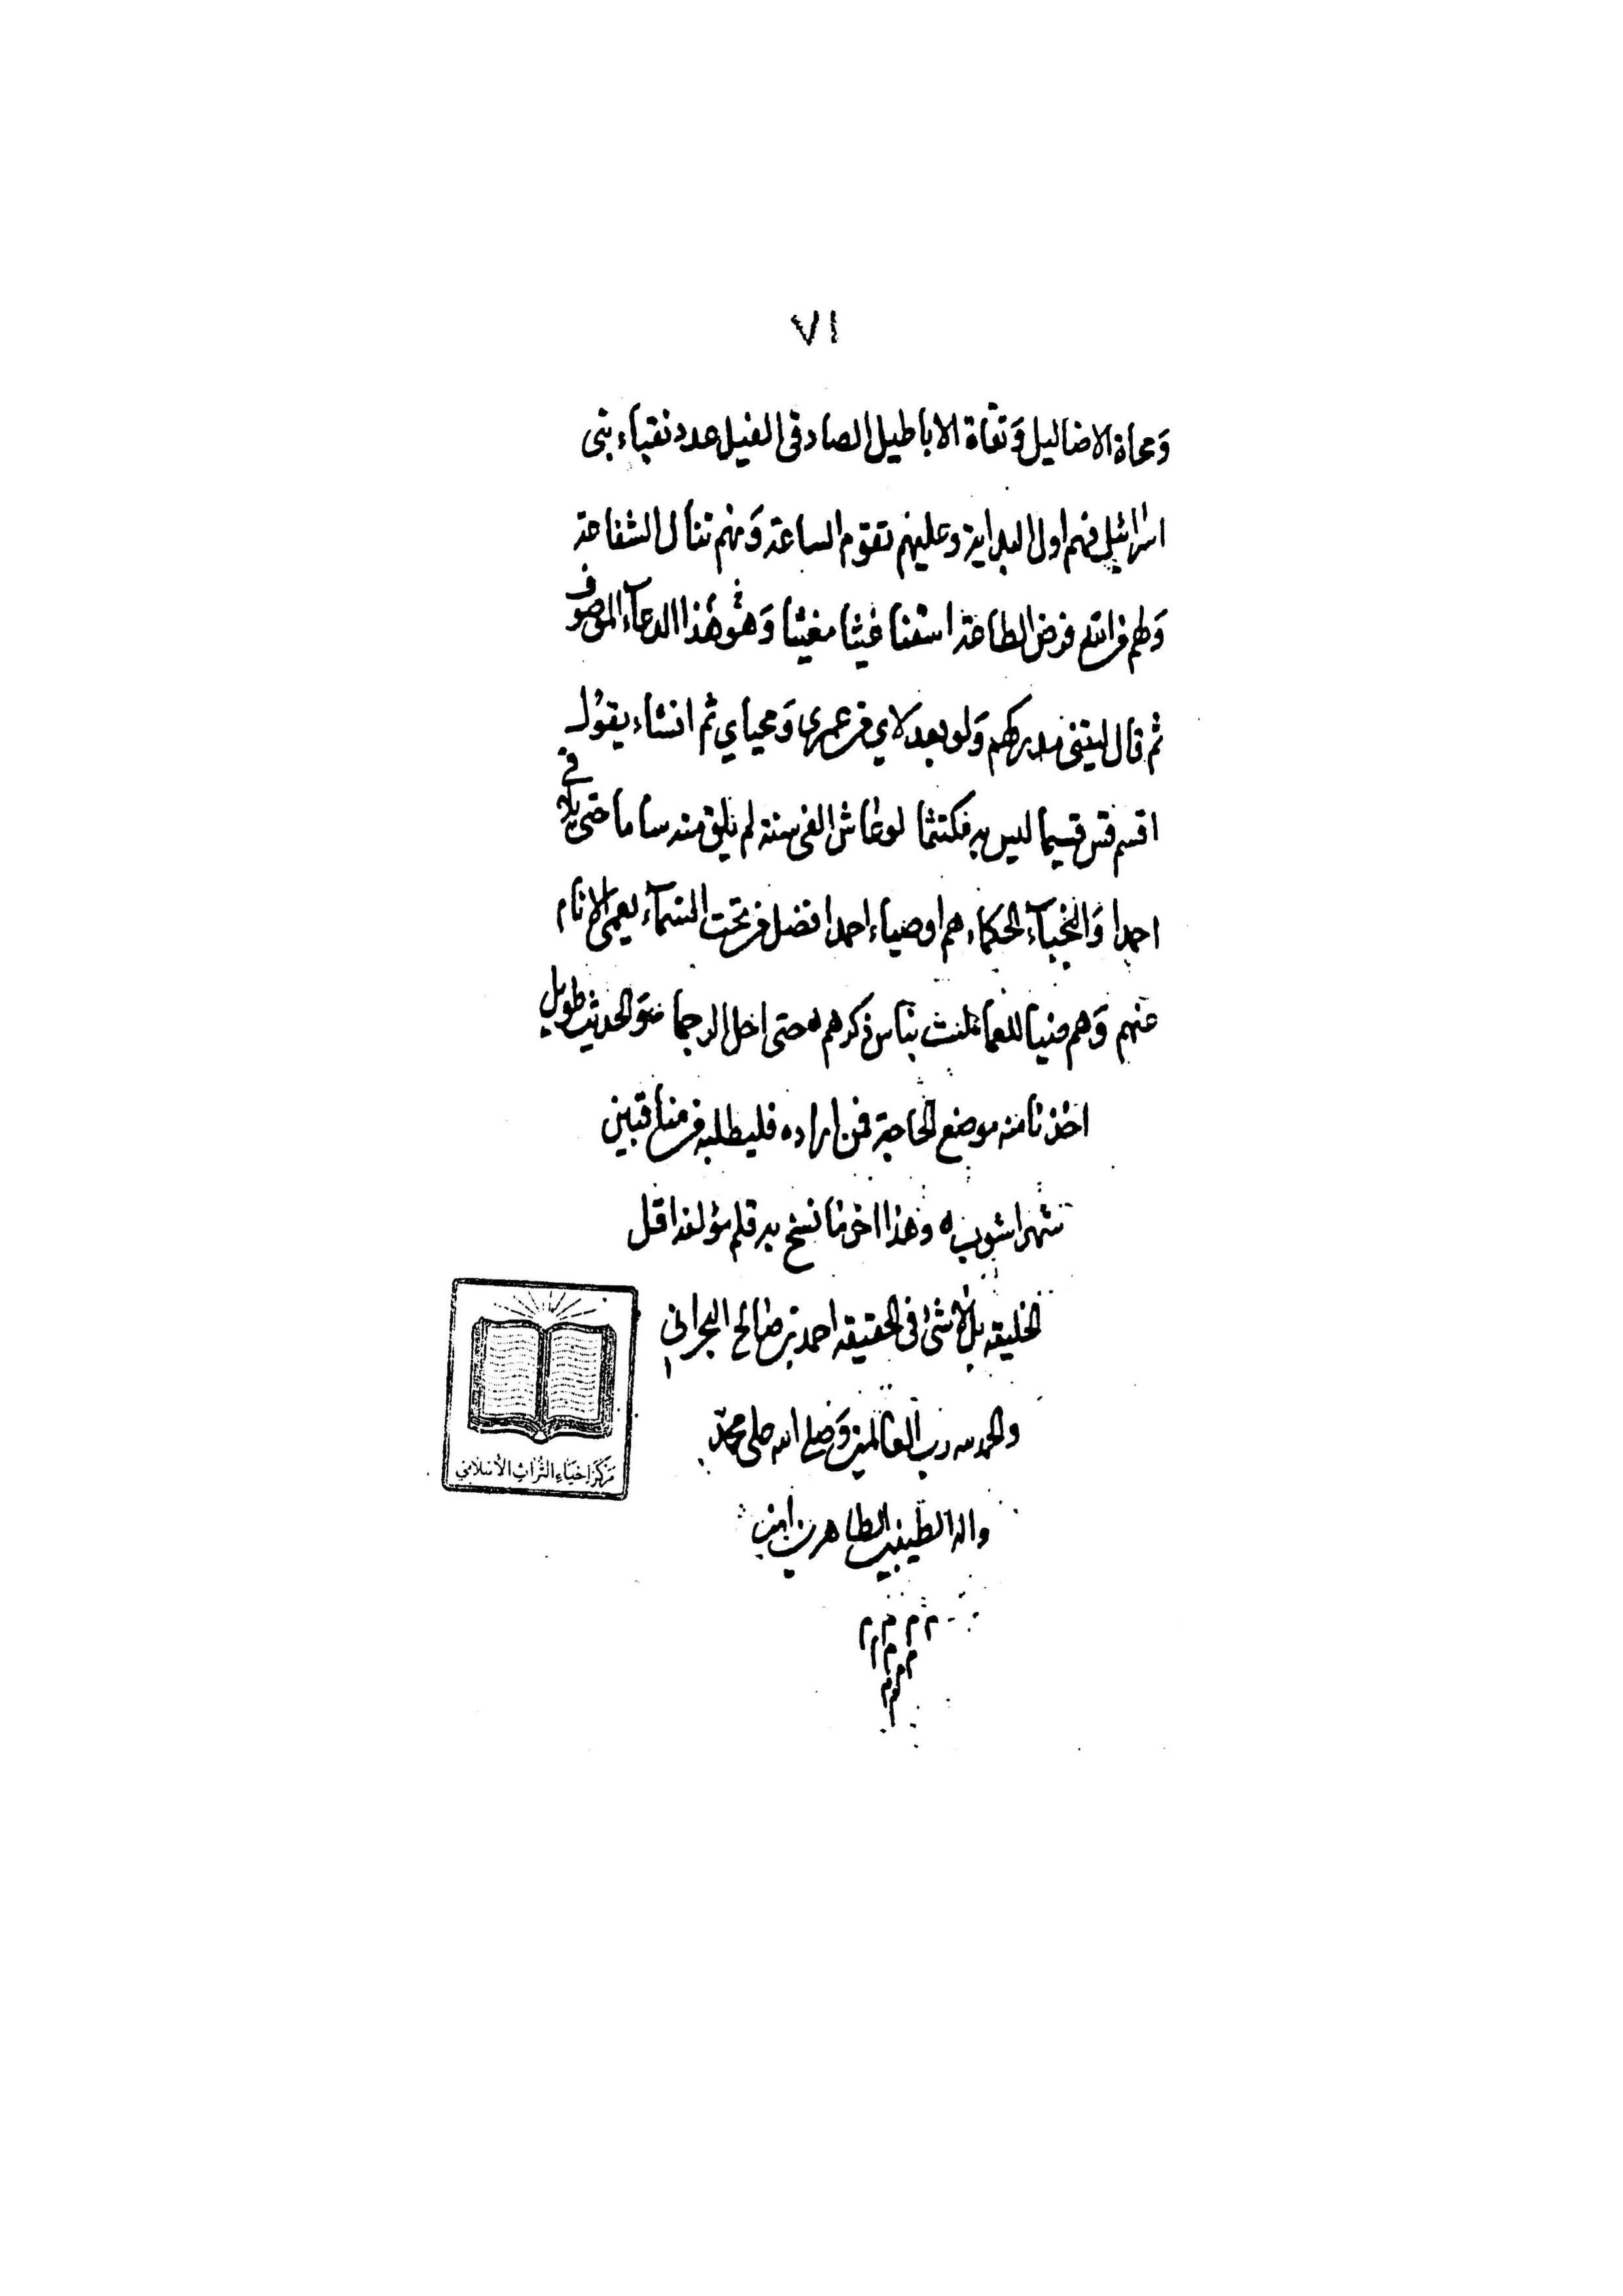 ٧١
وَمحاة الاضاليل وَنفاة الاباطيل الصادقى القيل عدد نقباء بنى
اسرائيل فهم اول البداية وعليهم تقوم الساعة وَبهم تنال الشفاعة
وَلهم من الله فرض الطاعة اسقنا غيثا مغيثا وَهذا الدعاء الموصوف
ثم قال ليتنى مدركهم وَلو بعد لاي من عمرى وَمحياي ثم انشاء يقول
اقسم قس قسما ليس به مكتتما لو عاش الفى سنة لم يلق منه ساما حتى يلاقى
احمدا وَالنجباء الحكماء هم اوصياء احمد افضل من تحت السماء يعمى الانام
عنهم وَهم ضياء للعما لست بناس ذكرهم حتى احل الرجما وَالحديث طويل
اخذنا منه موضع الحاجة فمن اراده فليطلبه من مناقب بن
شهراشوب وهذا اخر ما نسخ به قلم مؤلفه اقل
الخليقه بل لا شئ فى الحقيقه احمد بن صالح البحرانى
والحمد لله رب العالمين وَصلى الله على محمد
واله الطيبين الطاهرين امين
مركز احياء التراث الاسلامي